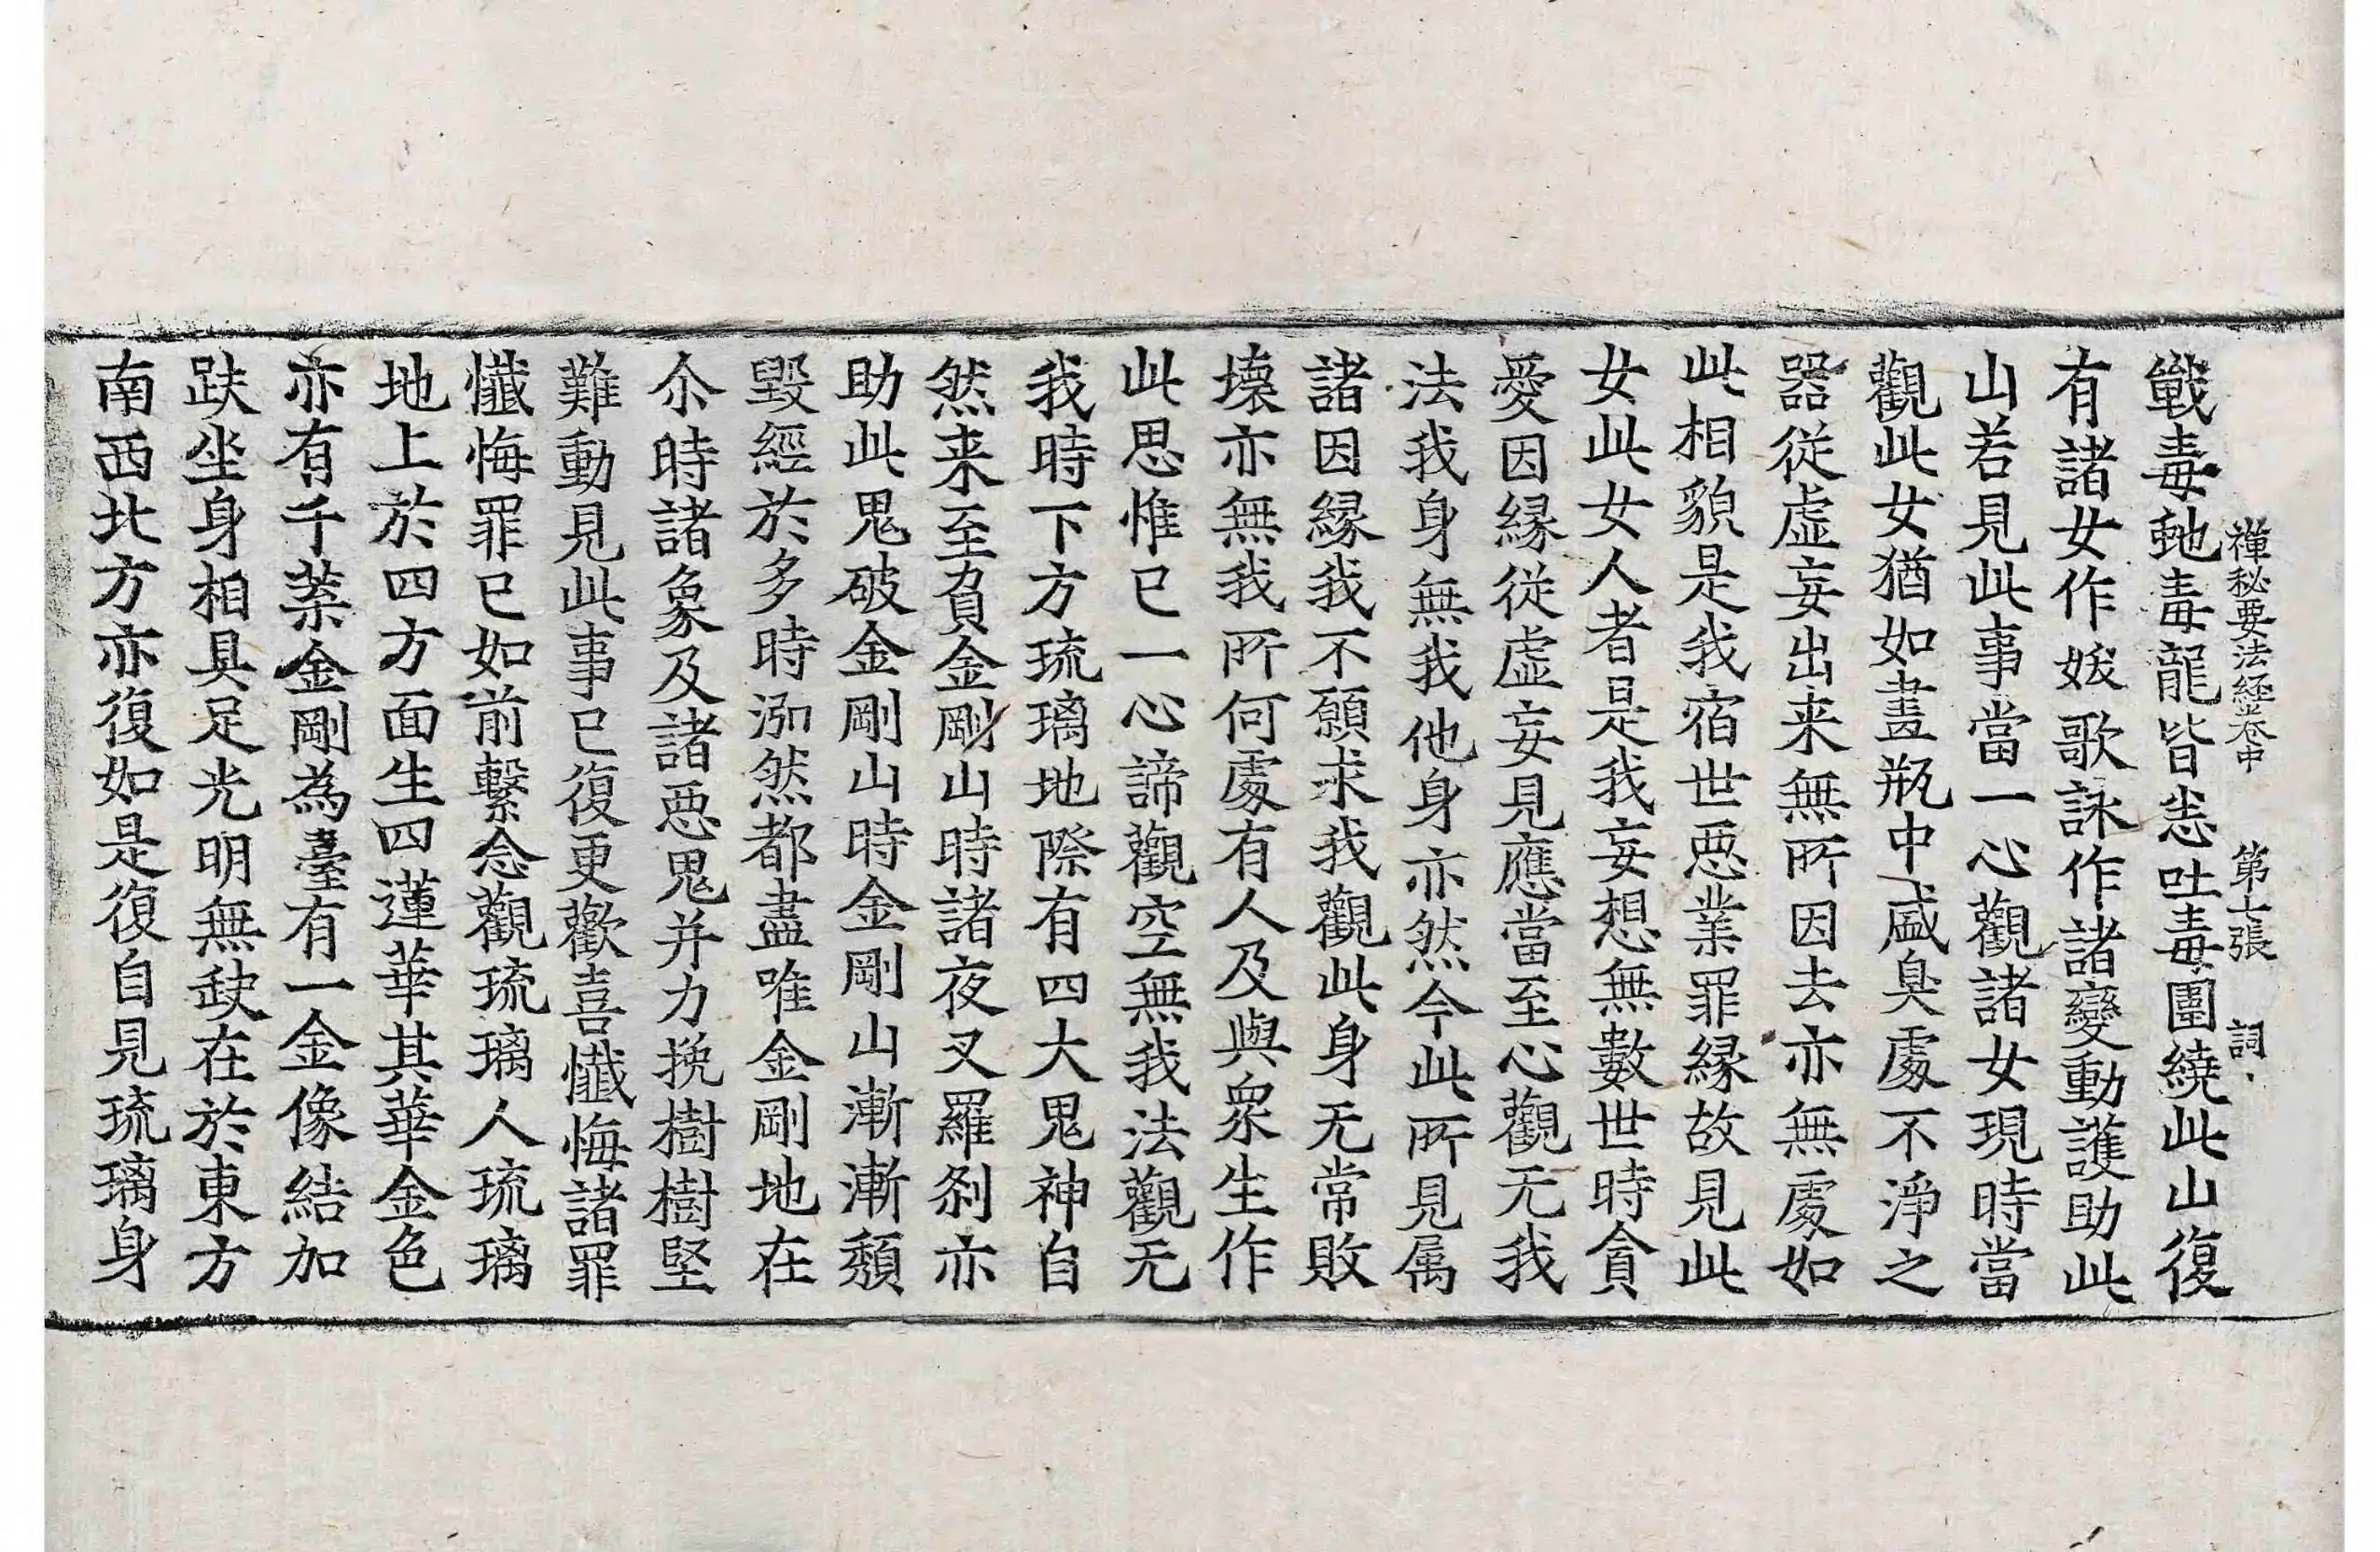 戰毒虵毒龍皆恙吐毒圍繞此山復
禪秘要法經卷中 第七張 詞
有諸女作妭歌詠作諸變動護助此
山若見此事當一心觀諸女現時當
觀此女猶如畫瓶中盛臭處不淨之
器從虛妄出来無所因去亦無處如
此相貌是我宿世惡業罪縁故見此
女此女人者是我妄想無數世時貪
愛因縁從虛妄見應當至心觀无我
法我身無我他身亦然今此所見属
諸因縁我不願求我觀此身无常敗
壊亦無我所何處有人及與衆生作
此思惟已一心諦觀空無我法觀无
我時下方琉璃地際有四大鬼神自
然来至負金剛山時諸夜叉羅剎亦
助此鬼破金剛山時金剛山漸漸頹
毀經於多時泓然都盡唯金剛地在
尒時諸象及諸惡鬼并力挽樹樹堅
難動見此事已復更歡喜懺悔諸罪
懺悔罪已如前繫念觀琉璃人琉璃
地上於四方面生四蓮華其華金色
亦有千葉金剛為臺有一金像結加
趺坐身相具足光明無缺在於東方
南西北方亦復如是復自見琉璃身